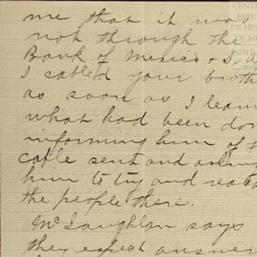 me that it was
not through the
Bank of Mexico & S. A
I cabled your broth
as soon as I learn
what had been don
informing him of t
cable sent and asking
him to try and reac
the people there.
McLaughlin says
they expect answer